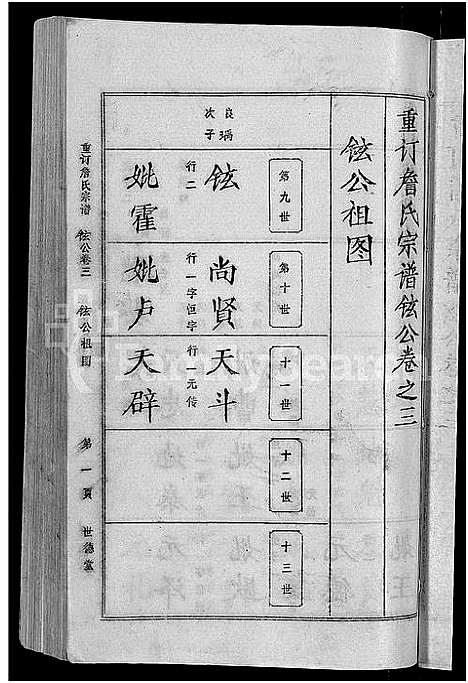 重订詹氏宗谱铉公卷之三
铉公祖图
第九世
良瑀
次子
铉
行二
妣霍
第十世
尚贤
行一字恒字
妣卢
十一世
天斗
行一元传
天辟
十二世
十三世
重订詹氏宗谱 铉公卷三 铉公祖图 第一頁 世德堂
FamilySearch